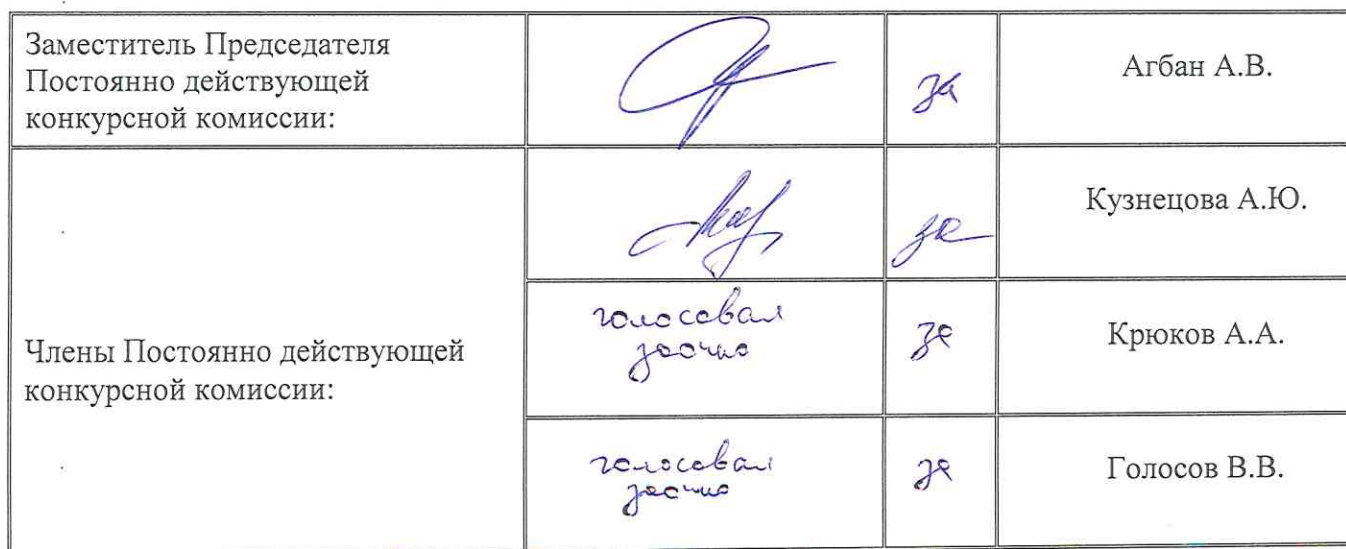 Заместитель Председателя
Постоянно действующей
конкурсной комиссии:
за
Агбан А.В.
за
Кузнецова А.Ю.
Члены Постоянно действующей
конкурсной комиссии:
голосовал
заочно
за
Крюков А.А.
голосовал
заочно
за
Голосов В.В.